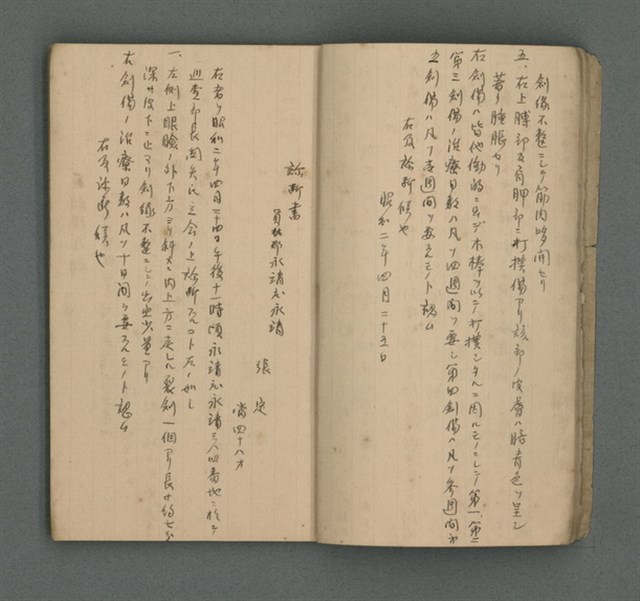 創縁不整ニシテ筋肉哆開セリ
五、右上膊部及肩胛部ニ打撲傷アリ該部ノ皮膚ハ暗青色ヲ呈シ
著シ腫脹セリ
右創傷ハ皆他働的ニシテ木棒ヲ以テ打撲シタルニ因ルモノニシテ第一、第二
第三創傷ノ治療日数ハ凡ソ四週間ヲ要シ第四創傷ハ凡ソ参週間第
五創傷ハ凡ソ壱週間ヲ要スモノト認ム
右及診断候也
昭和二年四月二十五日
診断書
員林郡永靖庄永靖
張 定
当四十八才
右者ハ昭和二年四月二十四日午後十一時頃永靖庄永靖三八四番地ニ於テ
巡査部長 立会ノ上診断スルコト左ノ如シ
一、左側上眼瞼ノ外下方ヨリ斜メニ内上方ニ走レル裂創一個アリ長サ約七
深サ皮下ニ止マリ創縁不整ニシテ出血少量アリ
右創傷ノ治療日数ハ凡ソ十日間ヲ要スルモノト認ム
右及診断候也